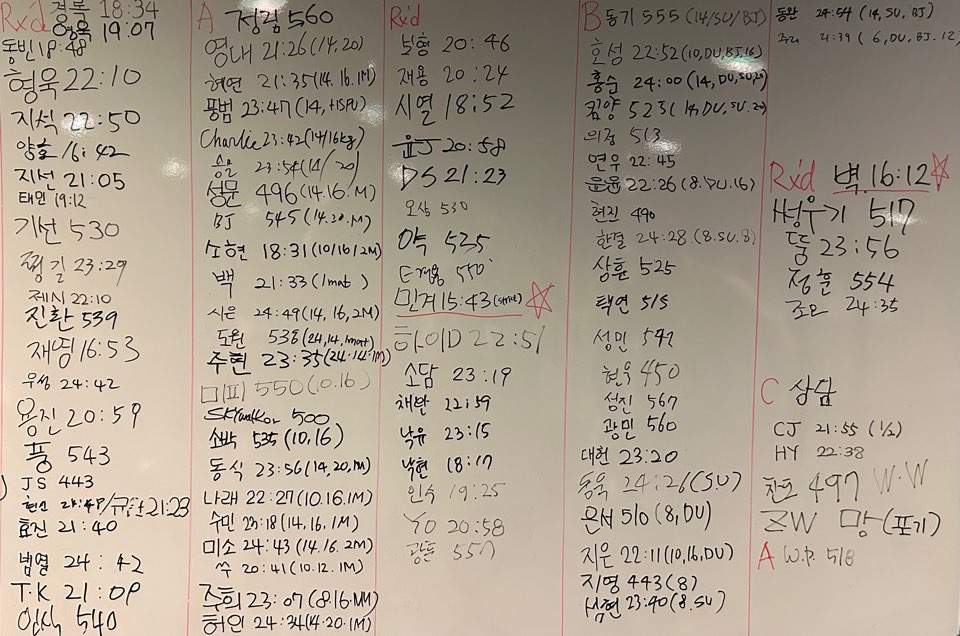 Rx'd
경록 18:34
영욱 19:07
동빈 18:48
형욱 22:10
지석 22:50
양호 16:42
지선 21:05
태민 19:12
기선 530
평길 23:29
제시 22:10
진환 539
재영 16:53
우성 24:42
용진 20:59
풍 543
JS 443
21:23
효진 21:40
범열 24:42
T.K 21:09
인식 540
A 정김 560
영대 21:26 (14,20)
현연 21:35 (14.16.1M)
풍범 23:47 (14,+15PU)
Charlie 23:42 (14/16kg)
승모 23:54 (14/20)
성문 496 (14.16.M)
BJ 545 (14.20.M)
소현 18:31 (10/16/2M)
백 21:33 (1mat)
시은 24:49 (14,16,2M)
도원 538 (24,14.1mat)
주현 23:35 (24.14.1M)
미피 550 (10.16)
SKYwalker 500
쏘박 535 (10,16)
동식 23:56 (14,20,1M)
나래 22:27 (10.16.1M)
수민 23:18 (14,16.1M)
미소 24:43 (14.16.2M)
쑤 20:41 (10.12.1M)
주희 23:07 (8.16.MM)
허인 24:34 (14.20.1M)
Rx'd
보형 20:46
재용 20:24
시열 18:52
윤J 20:58
DS 21:23
오상 530
약 535
550
민겨 15:43 (strict)
하이D 22:51
소담 23:19
채완 22:59
낙유 23:15
낙현 18:17
인수 19:25
YO 20:58
광훈 557
B 동기 555 (14/SU/BJ)
호성 22:52 (10,DU,BJ.16)
홍순 24:00 (14,DU,SU,20)
킴양 523 (14,DU,SU.20)
의정 513
연우 22:45
윤윤 22:26 (8.DU.16)
현진 490
한결 24:28 (8.SU.8)
상훈 525
택연 515
성민 592
현욱 450
성진 567
광민 560
대헌 23:20
동욱 24:26 (SU)
은서 510 (8,DU)
지은 22:11 (10,16,DU)
지영 443 (8)
23:40 (8.SU)
동완 24:54 (14,SU,BJ)
주리 21:39 (6,DU,BJ.12)
Rx'd 벽 16:12
병우기 517
뚱 23:56
정훈 554
조요 24:35
C 상담
CJ 21:55 (1/2)
HY 22:38
찬호 497 W.W
ZW 망 (포기)
A W.P. 518